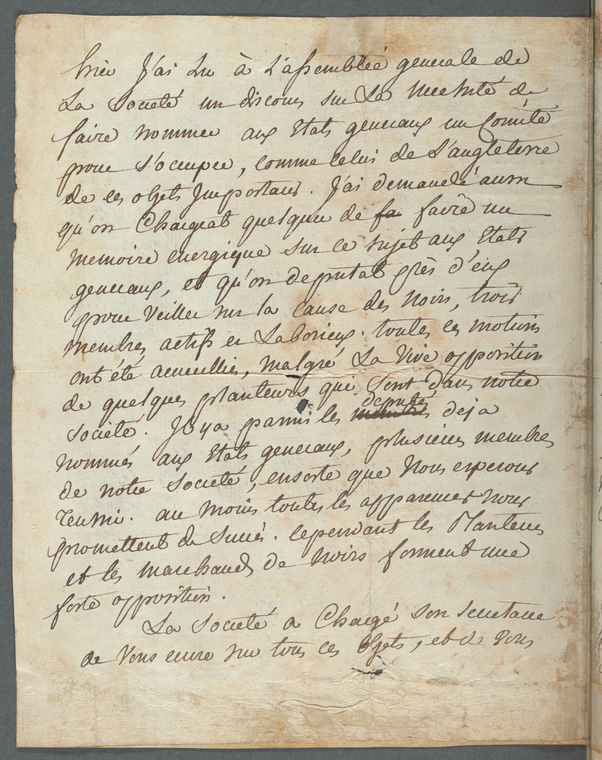 hier J'ai Lu à L'assemblée generale de
La Societé un discours sur La Necessité de
faire nommer aux Etats generaux un Comité
pour S'occuper, comme celui de L'angleterre
de ces objets Importans. J'ai demandé aussi
qu'on Chargeat quelqu'un de fa faire un
memoire energique sur ce sujet aux Etats
generaux, et qu'on deputat près d'eux
pour Veiller sur la cause des Noirs, trois
membres actifs et Laborieux. toutes ces motions
ont été accueillies, malgré La Vive opposition
de quelques planteurs qui Sont dans notre
Societé. Il y a parmi les membres deputés deja
nommés aux Etats generaux, plusieurs membres
de notre Societé, ensorte que Nous esperons
reussir. au moins toutes les apparences nous
promettent du Succès. cependant les Planteurs
et les marchands de Noirs forment une
forte opposition.
La Societé a Chargé son Secretaire
de Vous ecrire sur tous ces objets, et de vous